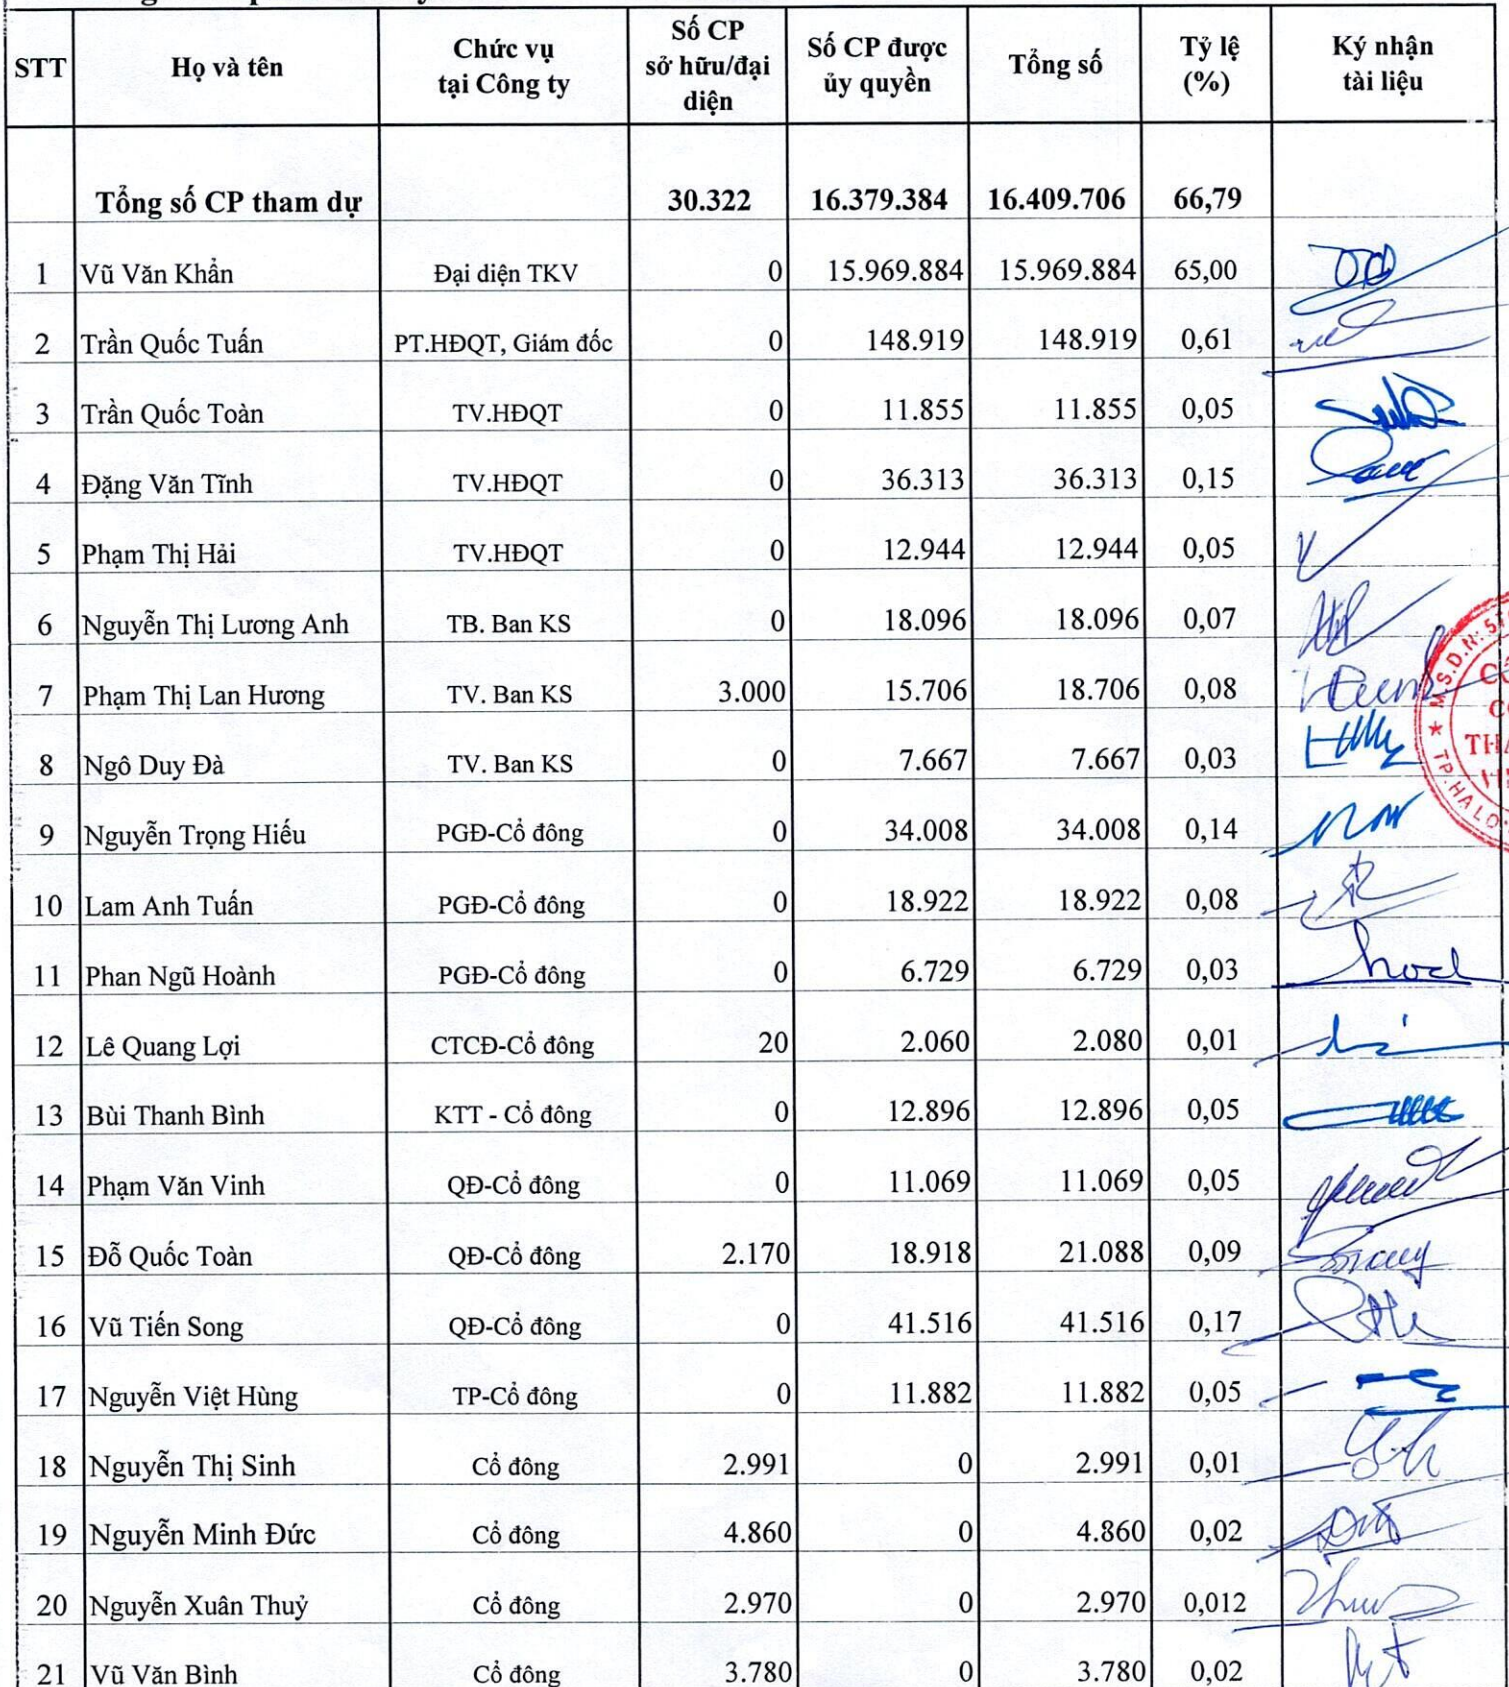 STT Họ và tên Chức vụ tại Công ty Số CP sở hữu/đại diện Số CP được ủy quyền Tổng số Tỷ lệ (%) Ký nhận tài liệu
Tổng số CP tham dự 30.322 16.379.384 16.409.706 66,79
1 Vũ Văn Khẩn Đại diện TKV 0 15.969.884 15.969.884 65,00
2 Trần Quốc Tuấn PT.HĐQT, Giám đốc 0 148.919 148.919 0,61
3 Trần Quốc Toàn TV.HĐQT 0 11.855 11.855 0,05
4 Đặng Văn Tĩnh TV.HĐQT 0 36.313 36.313 0,15
5 Phạm Thị Hải TV.HĐQT 0 12.944 12.944 0,05
6 Nguyễn Thị Lương Anh TB. Ban KS 0 18.096 18.096 0,07
7 Phạm Thị Lan Hương TV. Ban KS 3.000 15.706 18.706 0,08
8 Ngô Duy Đà TV. Ban KS 0 7.667 7.667 0,03
9 Nguyễn Trọng Hiếu PGĐ-Cổ đông 0 34.008 34.008 0,14
10 Lam Anh Tuấn PGĐ-Cổ đông 0 18.922 18.922 0,08
11 Phan Ngũ Hoành PGĐ-Cổ đông 0 6.729 6.729 0,03
12 Lê Quang Lợi CTCĐ-Cổ đông 20 2.060 2.080 0,01
13 Bùi Thanh Bình KTT - Cổ đông 0 12.896 12.896 0,05
14 Phạm Văn Vinh QĐ-Cổ đông 0 11.069 11.069 0,05
15 Đỗ Quốc Toàn QĐ-Cổ đông 2.170 18.918 21.088 0,09
16 Vũ Tiến Song QĐ-Cổ đông 0 41.516 41.516 0,17
17 Nguyễn Việt Hùng TP-Cổ đông 0 11.882 11.882 0,05
18 Nguyễn Thị Sinh Cổ đông 2.991 0 2.991 0,01
19 Nguyễn Minh Đức Cổ đông 4.860 0 4.860 0,02
20 Nguyễn Xuân Thuỷ Cổ đông 2.970 0 2.970 0,012
21 Vũ Văn Bình Cổ đông 3.780 0 3.780 0,02